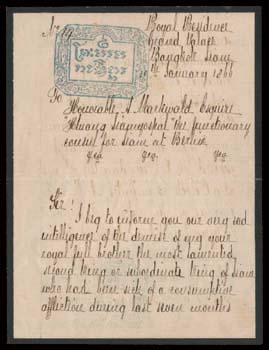 No 
Royal Residence
Grand Palace
Bangkok Siam
January 1866
To
Honorable A Markwald Esquire
Hluang Siamguospal the functionary
consul for Siam at Berlin
&ca &ca &ca
Sir!
I beg to inform you our very sad
intelligence of the demise of my your
royal full brother the most lamented
second king or subordinate king of Siam
who had been sick of a consumptive
affliction during last seven months